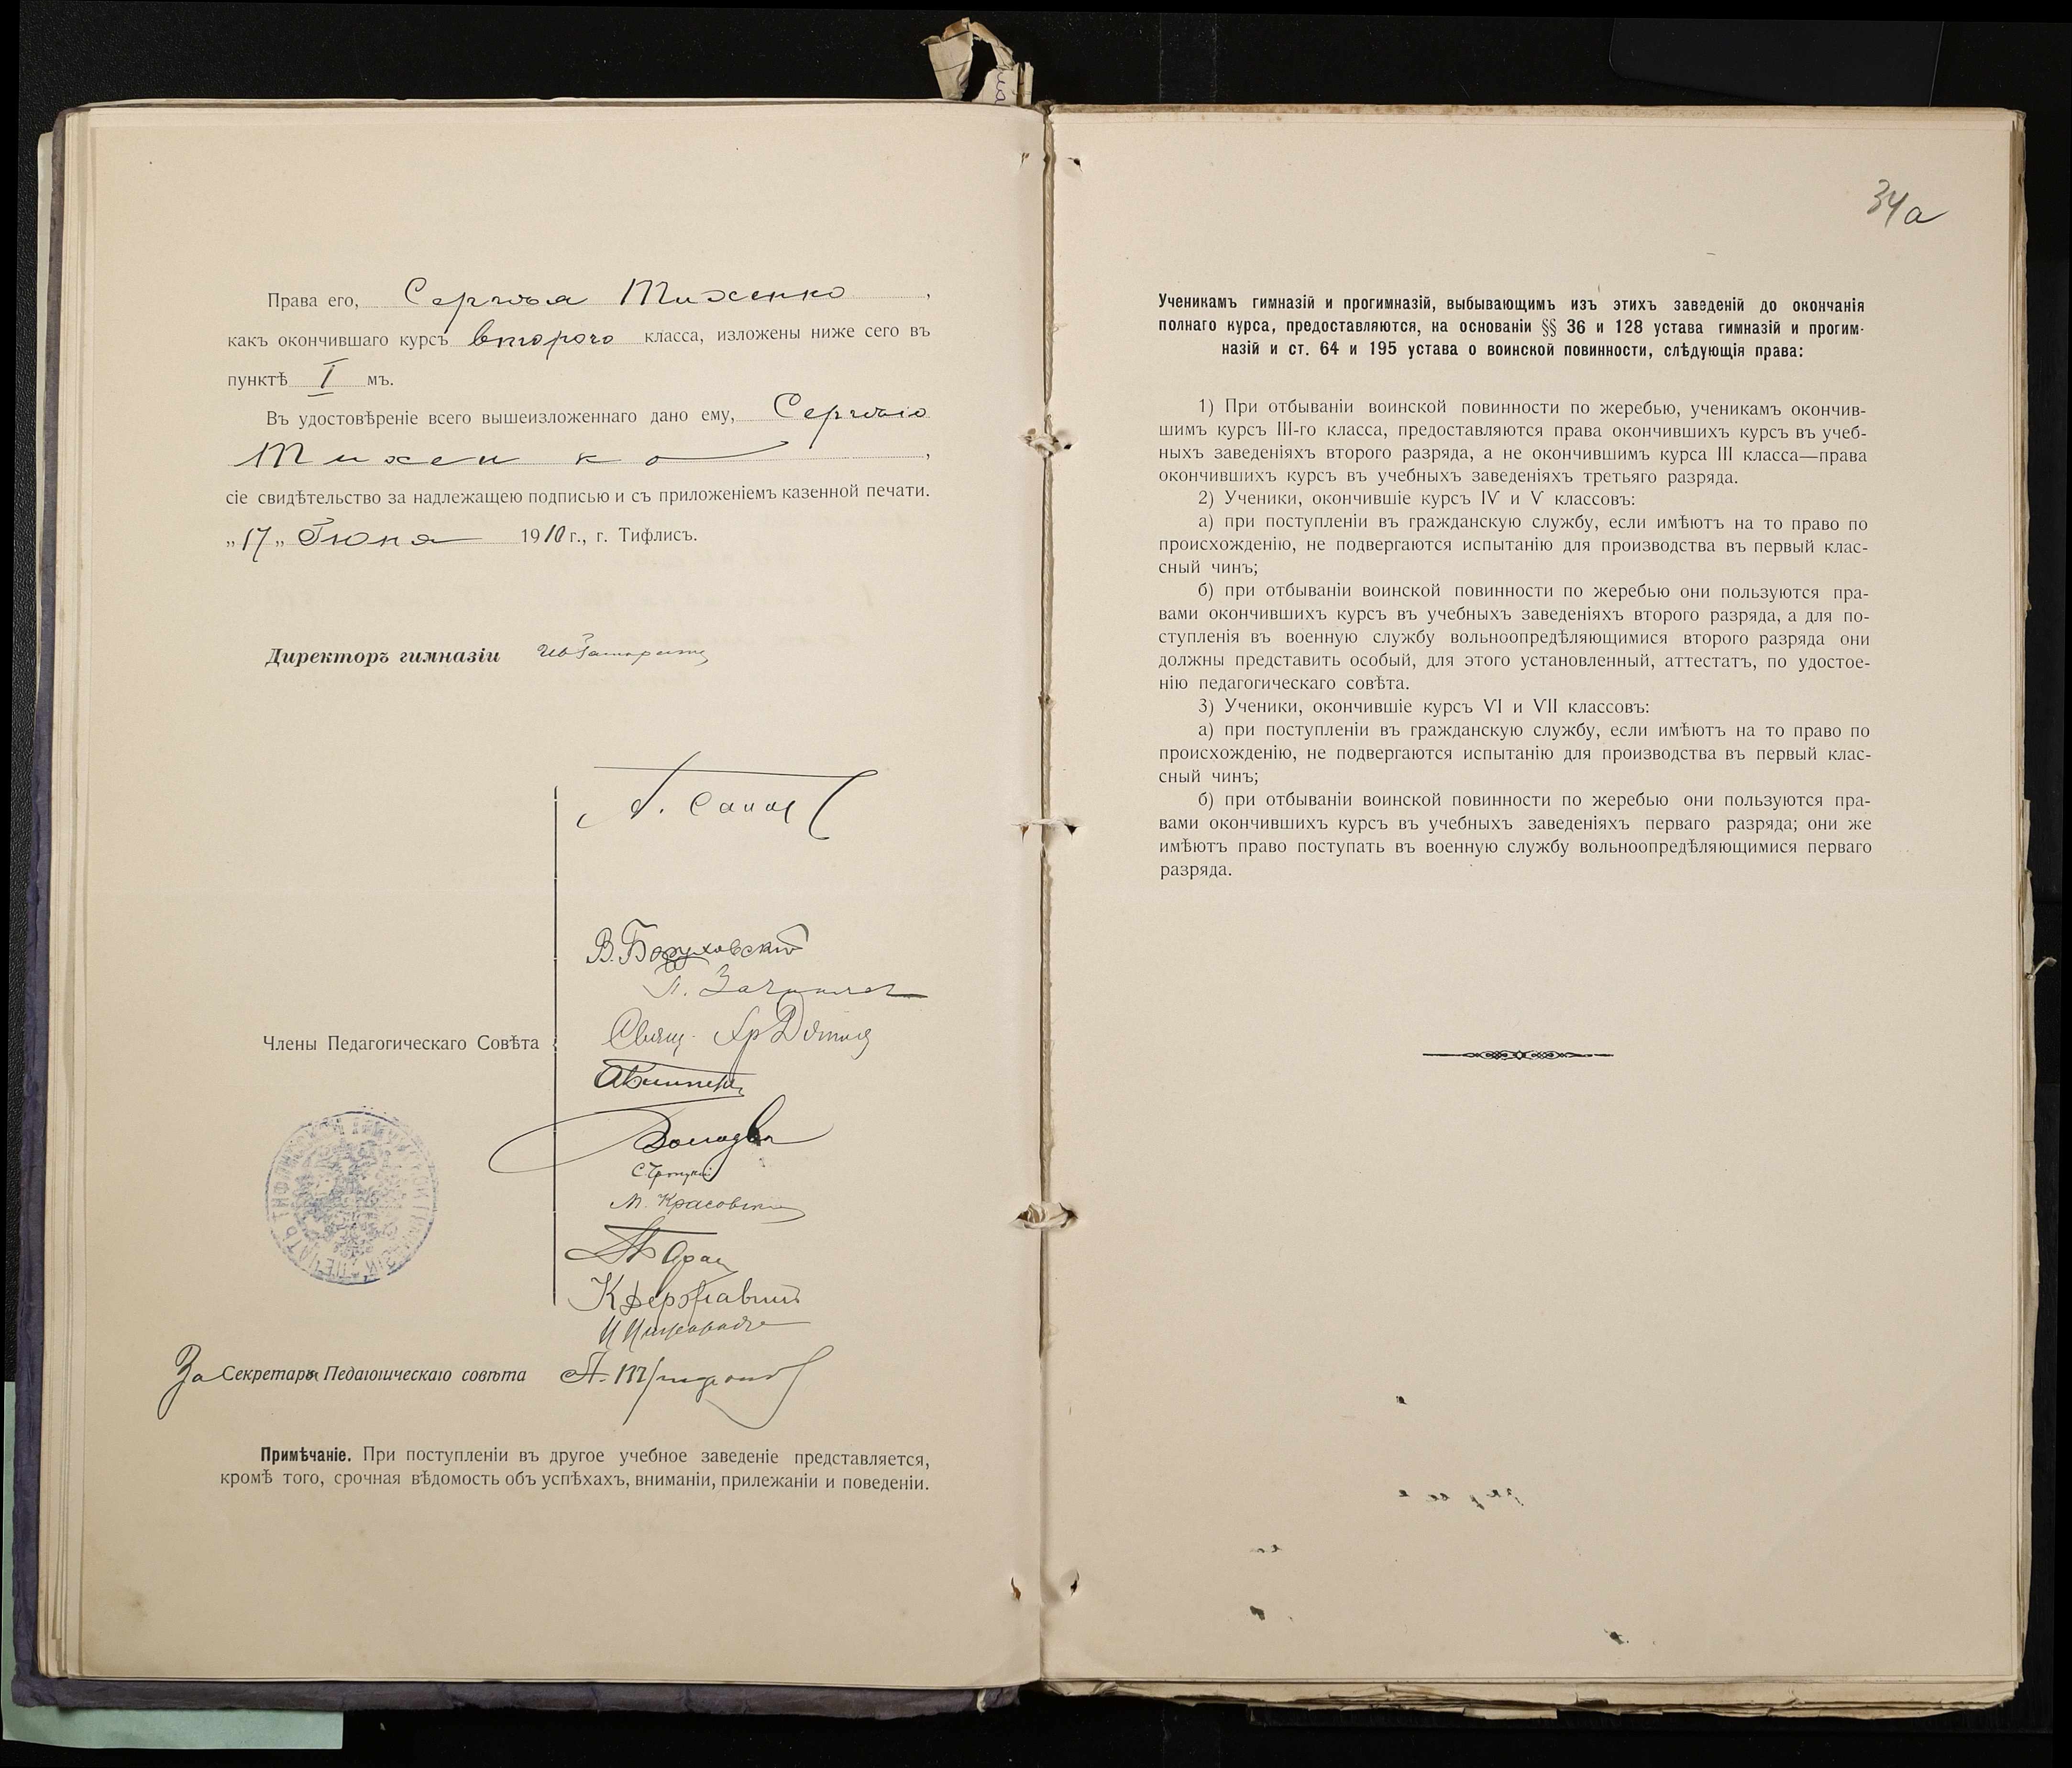 34а
Права его, Сергѣя Тихенко,
какъ окончившаго курсъ второго класса, изложены ниже сего въ
пунктѣ I мъ.
Въ удостовѣреніе всего вышеизложеннаго дано ему, Сергѣю
Тихенко,
сіе свидѣтельство за надлежащею подписью и съ приложеніемъ казенной печати.
„17„ Іюня 1910 г., г. Тифлисъ.
Директоръ гимназіи
Члены Педагогическаго Совѣта
В. Боруховскій
Свящ.
М. Красовскій
За Секретаря Педагогическаго совѣта
Примѣчаніе. При поступленіи въ другое учебное заведеніе представляется,
кромѣ того, срочная вѣдомость объ успѣхахъ, вниманіи, прилежаніи и поведеніи.
Ученикамъ гимназій и прогимназій, выбывающимъ изъ этихъ заведеній до окончанія
полнаго курса, предоставляются, на основаніи §§ 36 и 128 устава гимназій и прогим-
назій и ст. 64 и 195 устава о воинской повинности, слѣдующія права:
1) При отбываніи воинской повинности по жеребью, ученикамъ окончив-
шимъ курсъ III-го класса, предоставляются права окончившихъ курсъ въ учеб-
ныхъ заведеніяхъ второго разряда, а не окончившимъ курса III класса—права
окончившихъ курсъ въ учебныхъ заведеніяхъ третьяго разряда.
2) Ученики, окончившіе курсъ IV и V классовъ:
а) при поступленіи въ гражданскую службу, если имѣютъ на то право по
происхожденію, не подвергаются испытанію для производства въ первый клас-
сный чинъ;
б) при отбываніи воинской повинности по жеребью они пользуются пра-
вами окончившихъ курсъ въ учебныхъ заведеніяхъ второго разряда, а для по-
ступленія въ военную службу вольноопредѣляющимися второго разряда они
должны представить особый, для этого установленный, аттестатъ, по удостое-
нію педагогическаго совѣта.
3) Ученики, окончившіе курсъ VI и VII классовъ:
а) при поступленіи въ гражданскую службу, если имѣютъ на то право по
происхожденію, не подвергаются испытанію для производства въ первый клас-
сный чинъ;
б) при отбываніи воинской повинности по жеребью они пользуются пра-
вами окончившихъ курсъ въ учебныхъ заведеніяхъ перваго разряда; они же
имѣютъ право поступать въ военную службу вольноопредѣляющимися перваго
разряда.